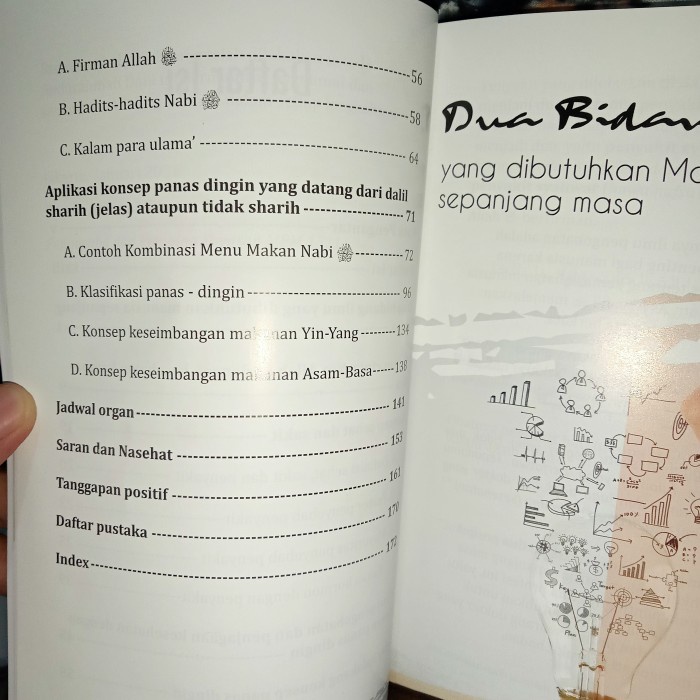 A. Firman Allah ﷻ ---------- 56
B. Hadits-hadits Nabi ﷺ ---------- 58
C. Kalam para ulama' ---------- 64
Aplikasi konsep panas dingin yang datang dari dalil
sharih (jelas) ataupun tidak sharih ---------- 71
A. Contoh Kombinasi Menu Makan Nabi ﷺ ---------- 72
B. Klasifikasi panas - dingin ---------- 96
C. Konsep keseimbangan makanan Yin-Yang ---------- 134
D. Konsep keseimbangan makanan Asam-Basa ------ 138
Jadwal organ ---------- 141
Saran dan Nasehat ---------- 153
Tanggapan positif ---------- 161
Daftar pustaka ---------- 170
Index ---------- 172
Dua Bidan
yang dibutuhkan Ma
sepanjang masa
100%
Target
Plan